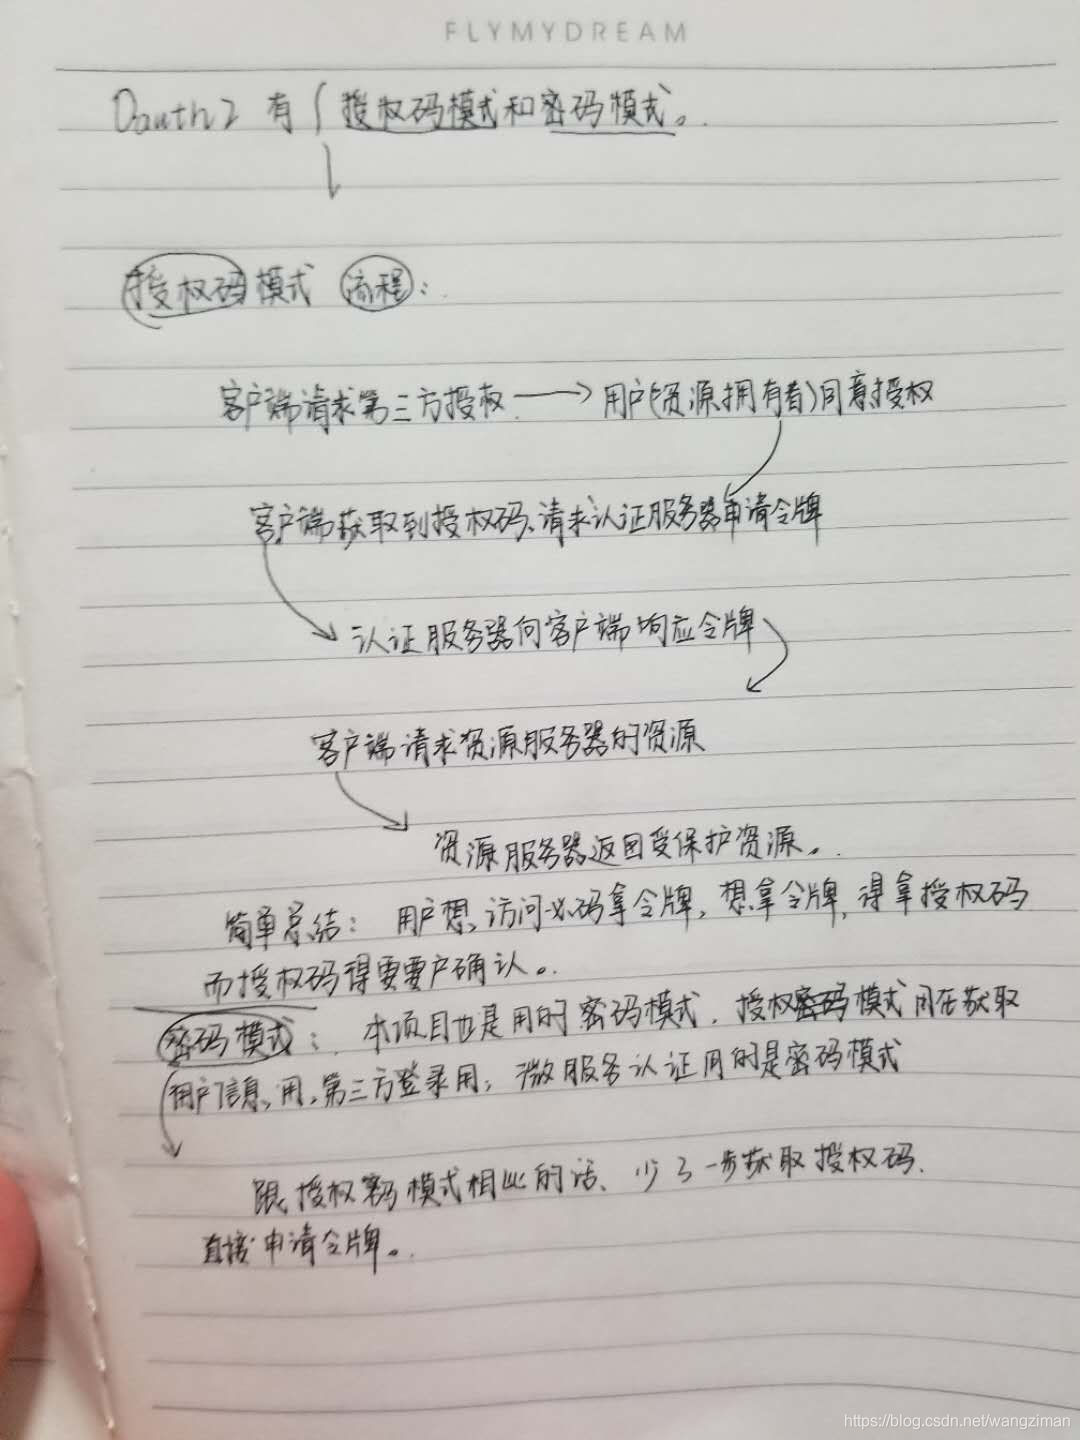 FLYMYDREAM
Oauth2 有 授权码模式和密码模式。
授权码模式 流程:
客户端请求第三方授权 → 用户(资源拥有者)同意授权
客户端获取到授权码、请求认证服务器申请令牌
认证服务器向客户端响应令牌
客户端请求资源服务器的资源
资源服务器返回受保护资源。
简单总结: 用户想,访问必码拿令牌,想拿令牌,得拿授权码
而授权码得要要户确认。
密码模式: 本项目也是用的密码模式,授权密码模式用在获取
用户信息,用,第三方登录用;微服务认证用的是密码模式
跟授权密码模式相比的话、少了一步获取授权码、
直接申请令牌。
https://blog.csdn.net/wangziman